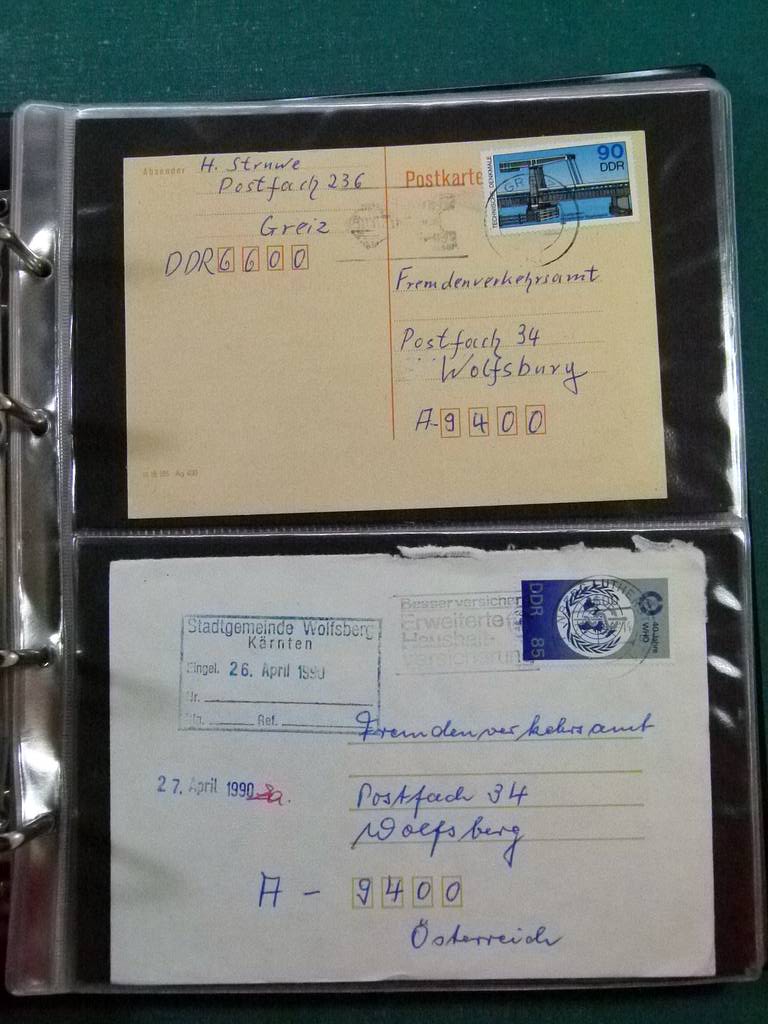 Absender
H. Struwe
Postfach 236
Greiz
DDR 6600
Postkarte
TECHNISCHE DENKMALE
90
DDR
Fremdenverkehrsamt
Postfach 34
Wolfsburg
A-9400
Ag 400
Stadtgemeinde Wolfsberg
Kärnten
Eingel. 26. April 1990
Nr.
Ref.
Besser versichert
Erweiterte
Haushalt-
versicherung
DDR 85
40 Jahre
WHO
LUTHER
Fremdenverkehrsamt
27. April 1990
Postfach 34
Wolfsberg
A - 9400
Österreich